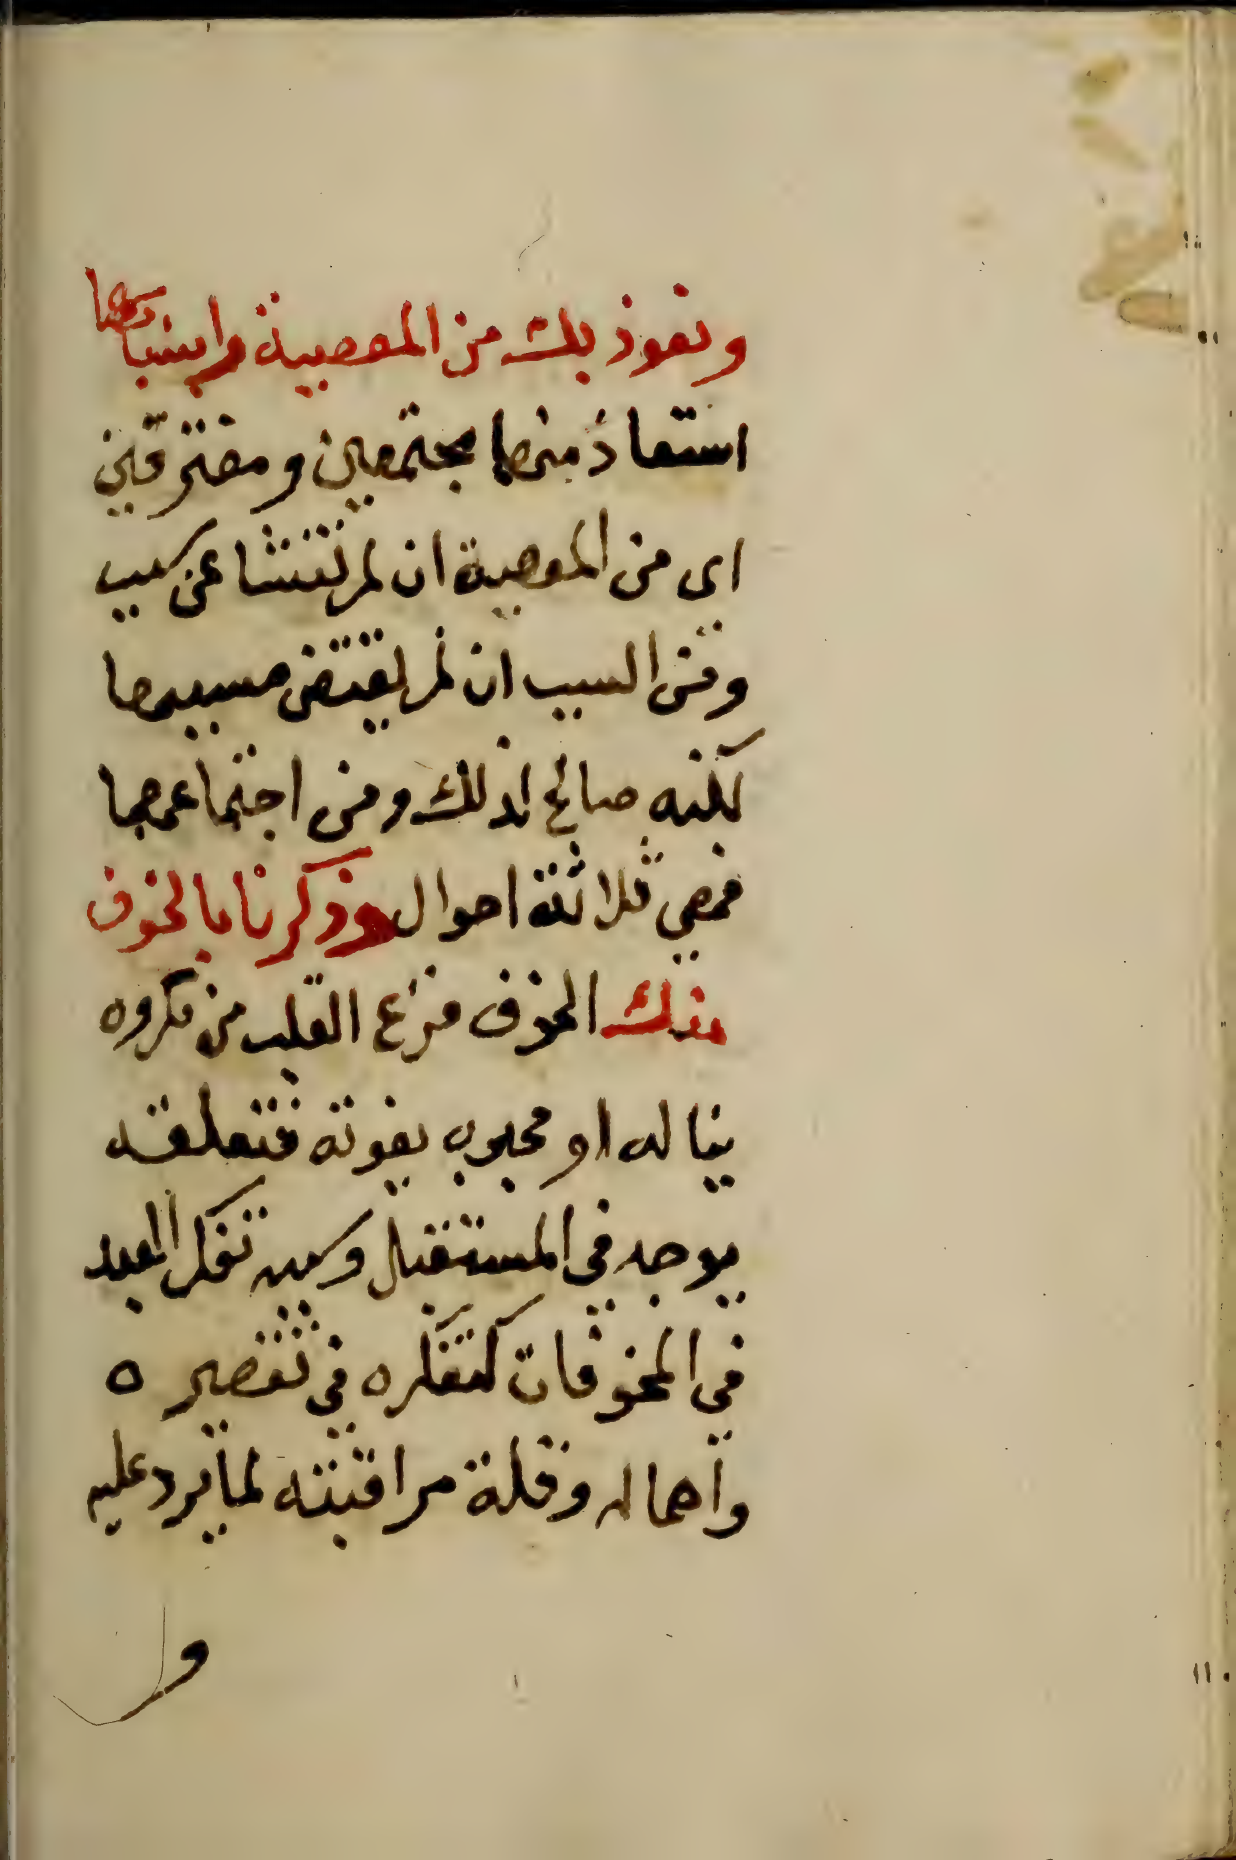 ونعوذ بك من المعصية واسبابها
استعاذ منها مجتمعين ومفترقين
اى من المعصية ان لم تنشا عن سبب
ومن السبب ان لم يقتض مسببها
لكنه صالح لذلك ومن اجتماعهما
فهي ثلاثة احوال وذكرنا بالخوف
منك الخوف فزع القلب من مكروه
يناله او محبوب يفوته فتعلقه
يوجد في المستقبل وسببه تفكر العبد
في المخوفات كتفكره في تقصيره
واهماله وقلة مراقبته لما يرد عليه
و